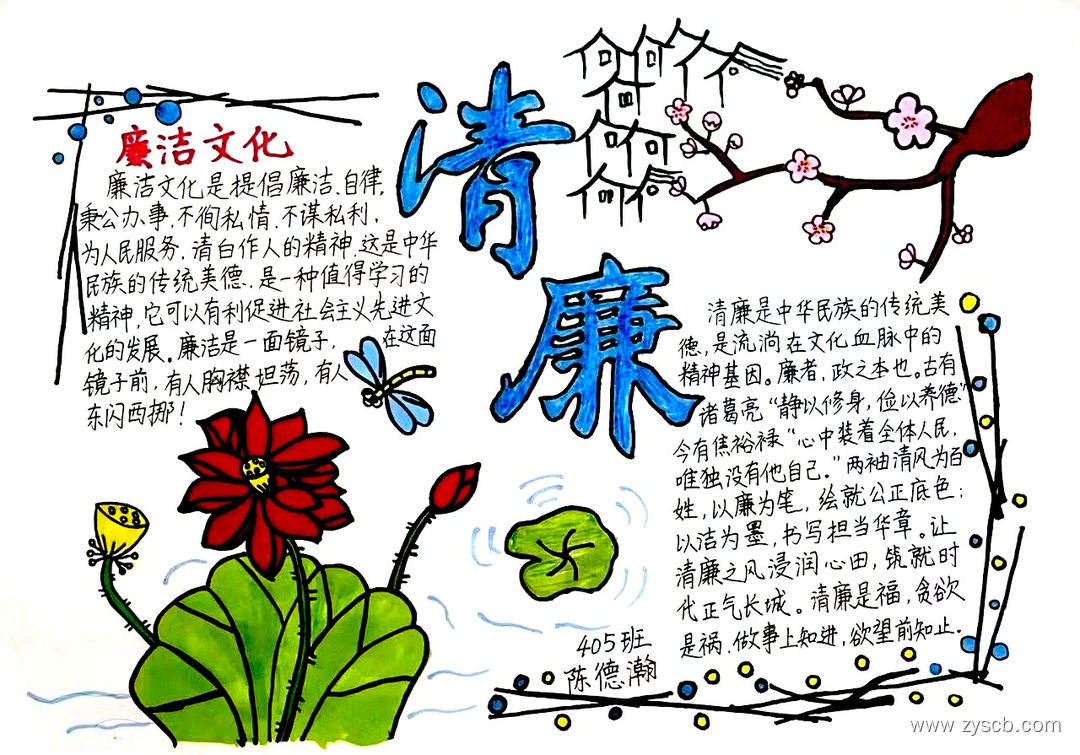 廉洁文化
廉洁文化是提倡廉洁、自律,
秉公办事,不徇私情、不谋私利,
为人民服务,清白作人的精神.这是中华
民族的传统美德.是一种值得学习的
精神,它可以有利促进社会主义先进文
化的发展。廉洁是一面镜子,在这面
镜子前,有人胸襟坦荡,有人
东闪西挪!
清
廉
清廉是中华民族的传统美
德,是流淌在文化血脉中的
精神基因。廉者,政之本也。古有
诸葛亮“静以修身,俭以养德”
今有焦裕禄“心中装着全体人民,
唯独没有他自己。”两袖清风为百
姓,以廉为笔,绘就公正底色;
以洁为墨,书写担当华章。让
清廉之风浸润心田,筑就时
代正气长城。清廉是福,贪欲
是祸.做事上知进,欲望前知止.
405班
陈德瀚
www.zyscb.com